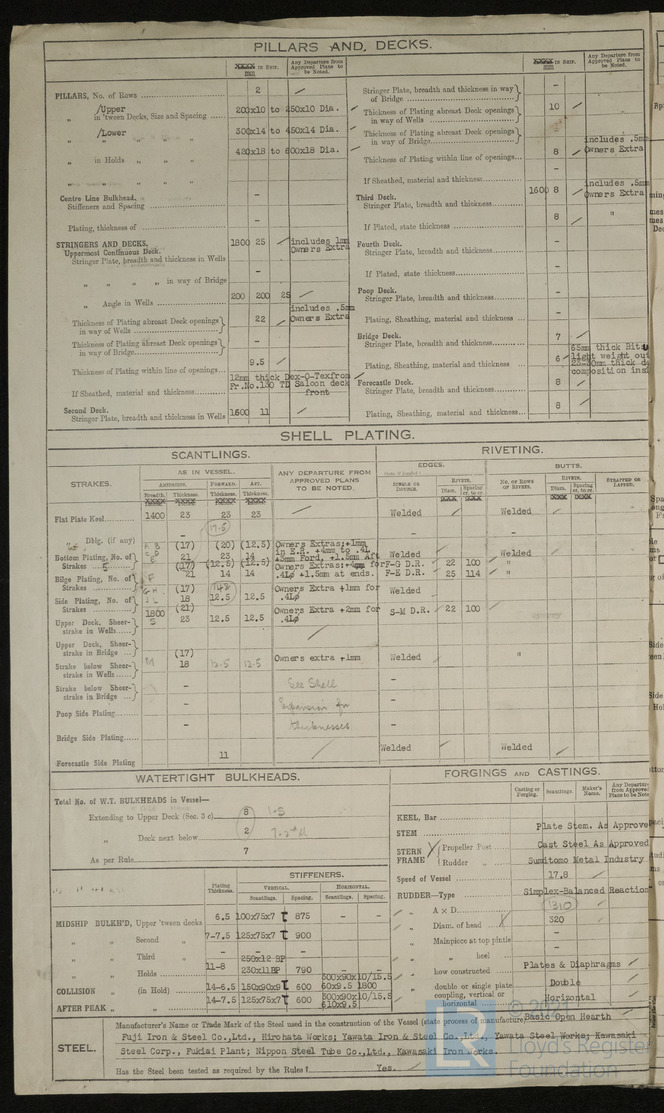 PILLARS AND DECKS.
XXXX IN SHIP. mm
Any Departure from Approved Plans to be Noted.
PILLARS, No. of Rows 2
/Upper
„ in 'tween Decks, Size and Spacing 200x10 to 450x10 Dia.
/Lower
„ „ „ „ 300x14 to 450x14 Dia.
„ in Holds „ „ 480x18 to 600x18 Dia.
Centre Line Bulkhead.
Stiffeners and Spacing -
Plating, thickness of -
STRINGERS AND DECKS.
Uppermost Continuous Deck.
Stringer Plate, breadth and thickness in Wells 1800 25 includes 1mm Owners Extra
„ „ „ „ in way of Bridge -
„ Angle in Wells 200 200 25
Thickness of Plating abreast Deck openings in way of Wells 22 includes .5mm Owners Extra
Thickness of Plating abreast Deck openings in way of Bridge -
Thickness of Plating within line of openings 9.5
If Sheathed, material and thickness 12mm thick Dex-O-Tex from Fr.No.150 TO Saloon deck front
Second Deck.
Stringer Plate, breadth and thickness in Wells 1600 11
XXXX IN SHIP. mm
Any Departure from Approved Plans to be Noted.
Stringer Plate, breadth and thickness in way of Bridge -
Thickness of Plating abreast Deck openings in way of Wells 10
Thickness of Plating abreast Deck openings in way of Bridge -
Thickness of Plating within line of openings 8 includes .5mm Owners Extra
If Sheathed, material and thickness -
Third Deck.
Stringer Plate, breadth and thickness 1600 8 includes .5mm Owners Extra
If Plated, state thickness 8 "
Fourth Deck.
Stringer Plate, breadth and thickness -
If Plated, state thickness -
Poop Deck.
Stringer Plate, breadth and thickness -
Plating, Sheathing, material and thickness -
Bridge Deck.
Stringer Plate, breadth and thickness 7
Plating, Sheathing, material and thickness 6 65mm thick light weight composition
Forecastle Deck.
Stringer Plate, breadth and thickness 8
Plating, Sheathing, material and thickness 8
SHELL PLATING.
SCANTLINGS.
RIVETING.
STRAKES.
AS IN VESSEL.
ANY DEPARTURE FROM APPROVED PLANS TO BE NOTED.
EDGES.
BUTTS.
AMIDSHIPS. FORWARD. AFT.
Breadth. Thickness. Thickness. Thickness.
SINGLE OR DOUBLE.
RIVETS.
Diam. Spacing cr. to cr.
NO. OF ROWS OF RIVETS.
RIVETS.
Diam. Spacing cr. to cr.
STRAPPED OR LAPPED.
Flat Plate Keel 1400 23 23 23 Welded Welded
17.5
„ Dblg. (if any) - -
Bottom Plating, No. of Strakes 5 (17) (20) (12.5) 21 23 14 Owners Extras:+1mm in E.R. +4mm to .4L +5mm Ford, +1.5mm Aft Welded Welded
Bilge Plating, No. of Strakes F (17) (12.5) (12.5) 21 14 14 Owners Extras:+4mm for .4LØ +1.5mm at ends. F-G D.R. 22 100 "
F-E D.R. 25 114 "
Side Plating, No. of Strakes G H J L (17) 18 12.5 12.5 Owners Extra +1mm for .4LØ Welded
Upper Deck, Sheer-strake in Wells S 1800 (21) 23 12.5 12.5 Owners Extra +2mm for .4LØ S-M D.R. 22 100
Upper Deck, Sheer-strake in Bridge - -
Strake below Sheer-strake in Wells M (17) 18 12.5 12.5 Owners extra +1mm Welded "
Strake below Sheer-strake in Bridge - See Shell -
Poop Side Plating - Expansion for -
Bridge Side Plating - thicknesses -
Forecastle Side Plating 11 Welded Welded
WATERTIGHT BULKHEADS.
Total No. of W.T. BULKHEADS in Vessel—
Extending to Upper Deck (Sec. 3 c) 8
„ Deck next below 2
As per Rule 7
Plating Thickness.
STIFFENERS.
VERTICAL. HORIZONTAL.
Scantlings. Spacing. Scantlings. Spacing.
MIDSHIP BULKH'D, Upper 'tween decks 6.5 100x75x7 875 - -
„ „ Second „ 7-7.5 125x75x7 900
„ „ Third „ - - - -
„ „ Holds 11-8 250x12 BP 230x11BP 790 - -
COLLISION „ (in Hold) 14-6.5 150x90x9 600 500x90x10/15.5 60x9.5 1800
AFTER PEAK „ „ 14-7.5 125x75x7 600 300x90x10/15.5 610x9.5
FORGINGS AND CASTINGS.
Casting or Forging. Scantlings. Maker's Name. Any Departure from Approved Plans to be Noted
KEEL, Bar -
STEM Plate Stem. As Approve
STERN FRAME Propeller Post Cast Steel As Approved
Rudder „ Sumitomo Metal Industry
Speed of Vessel 17.8
RUDDER—Type Simplex-Balanced Reaction
„ A x D 1310
„ Diam. of head 320
„ Mainpiece at top pintle -
„ „ heel -
„ how constructed Plates & Diaphragms
„ double or single plate Double
coupling, vertical or horizontal Horizontal
STEEL.
Manufacturer's Name or Trade Mark of the Steel used in the construction of the Vessel (state process of manufacture) Basic Open Hearth
Fuji Iron & Steel Co.,Ltd., Hirohata Works; Yawata Iron & Steel Co.,Ltd., Yawata Steel Works; Kawasaki
Steel Corp., Fukiai Plant; Nippon Steel Tube Co.,Ltd., Kawasaki Iron Works.
Has the Steel been tested as required by the Rules? Yes.
LR
© 2021
Lloyd's Register
Foundation